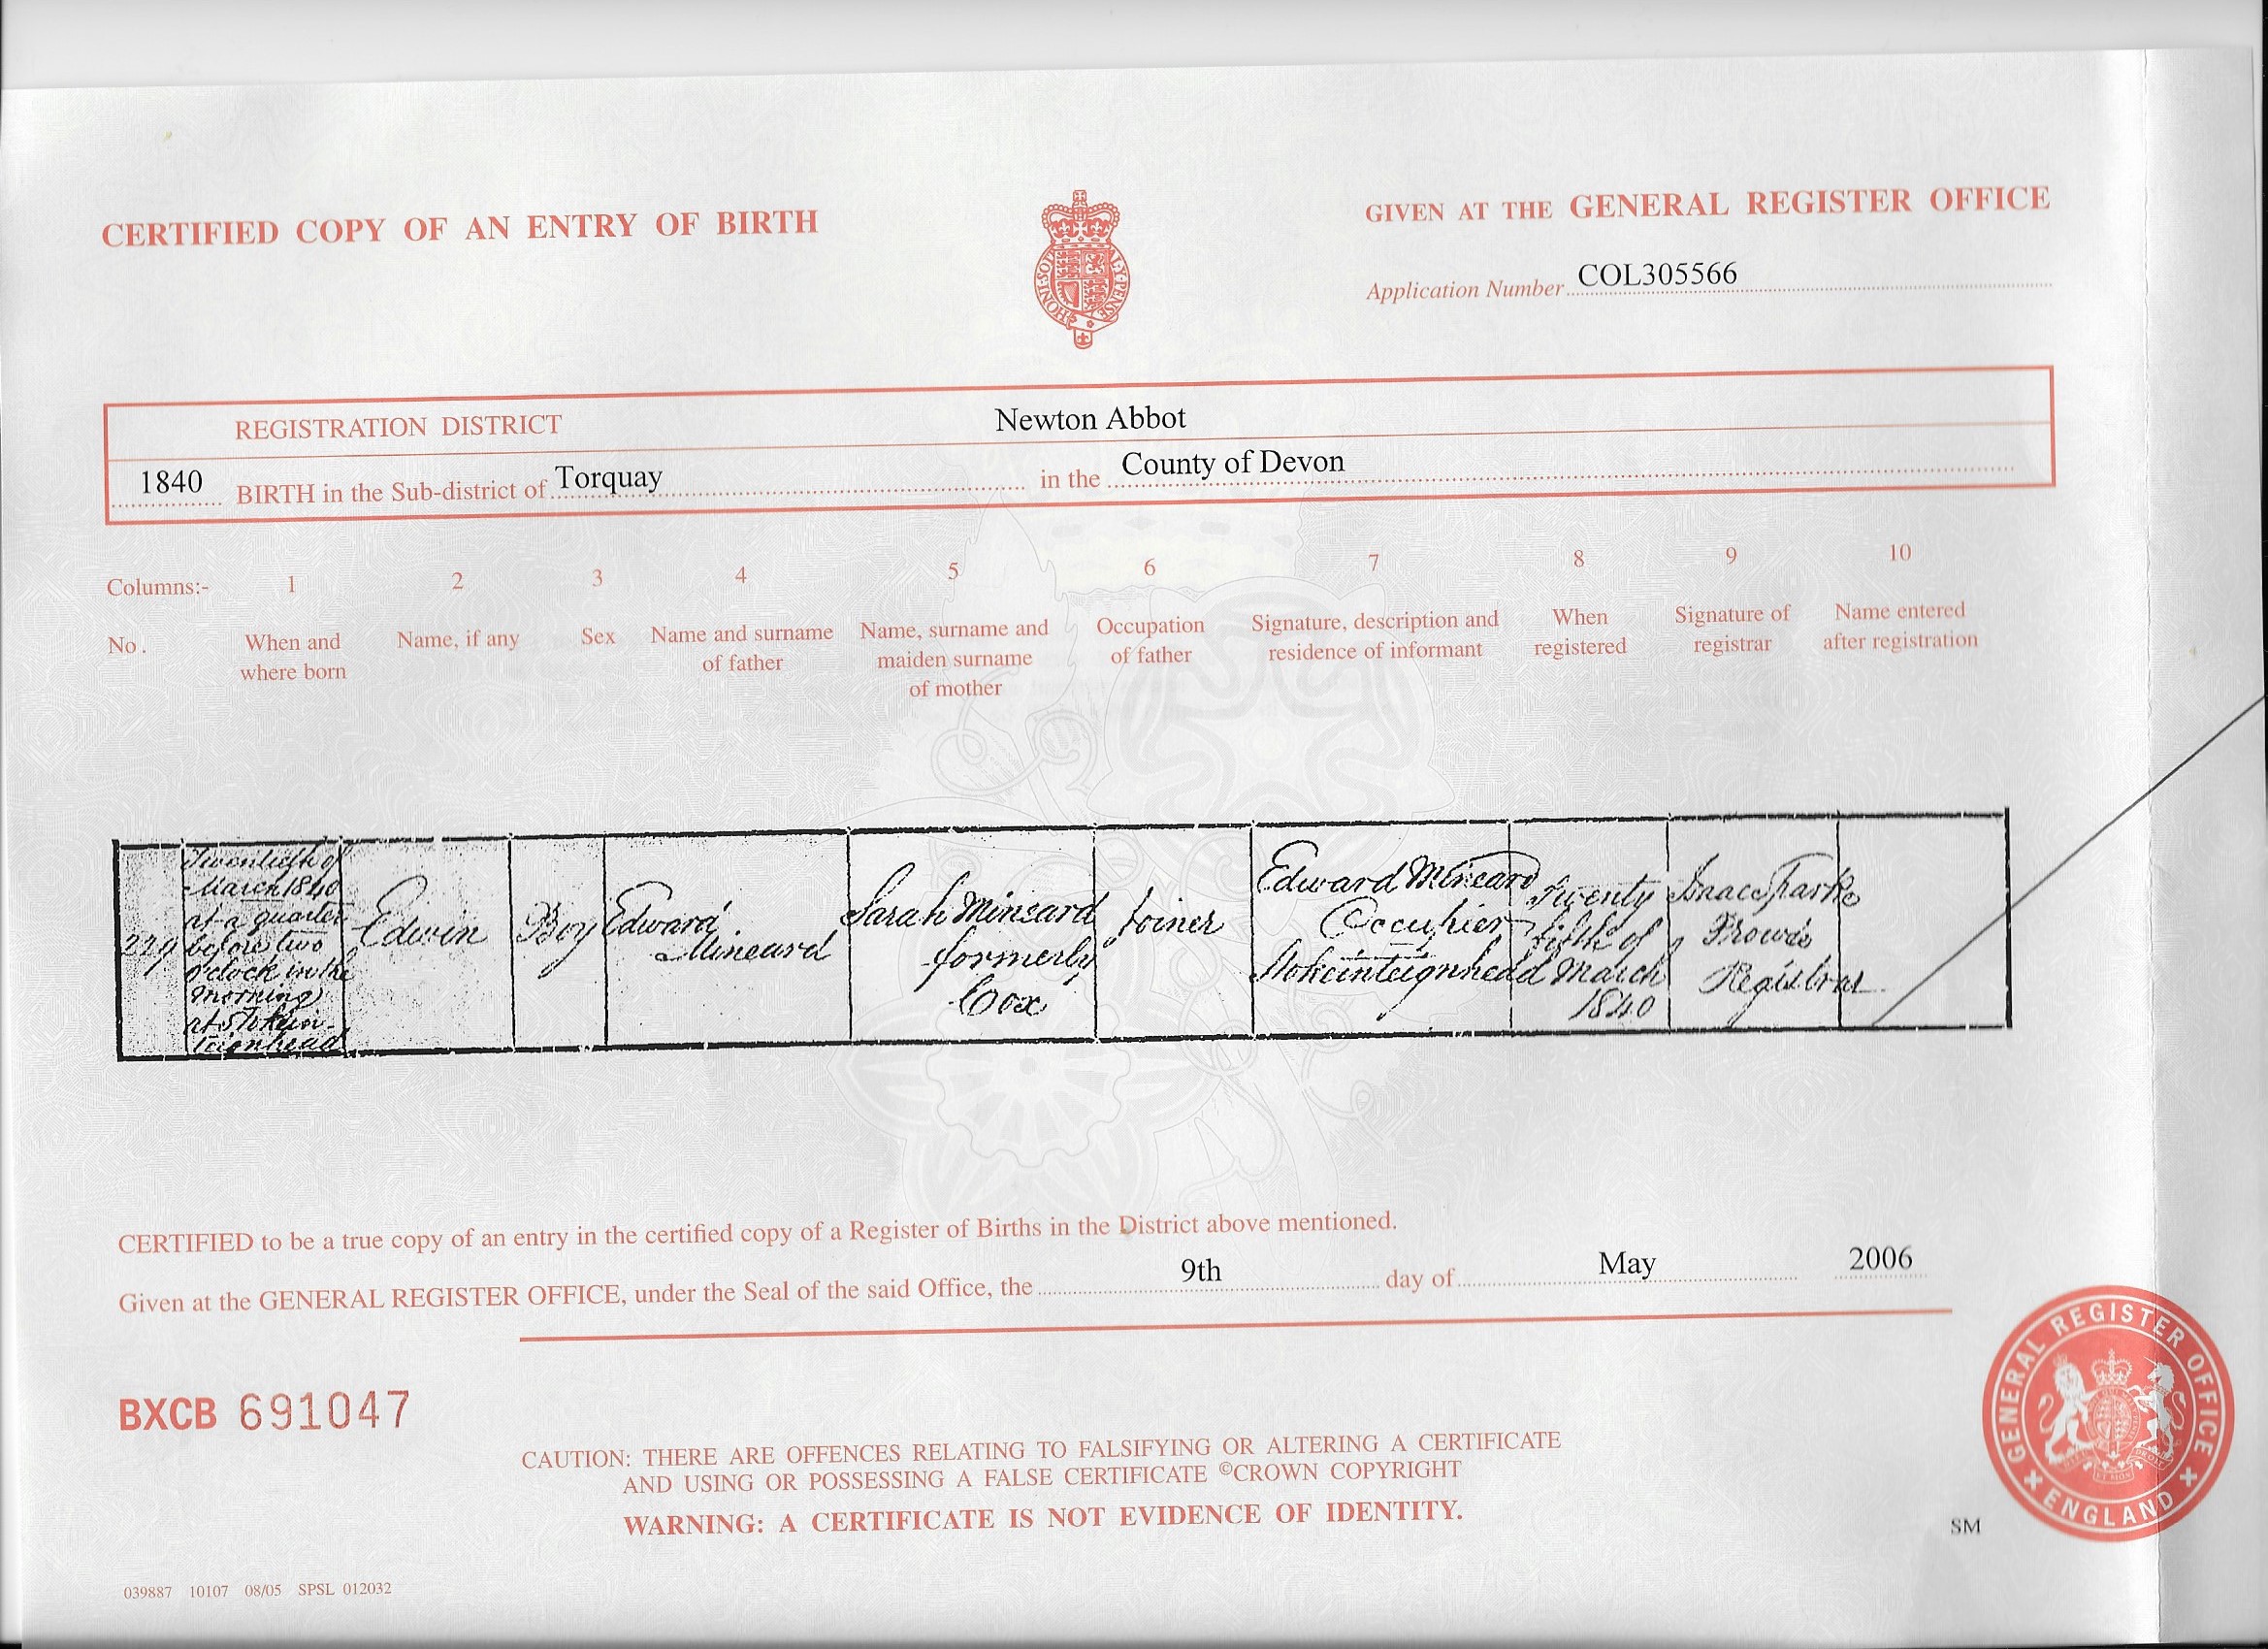 CERTIFIED COPY OF AN ENTRY OF BIRTH
GIVEN AT THE GENERAL REGISTER OFFICE
Application Number COL305566
REGISTRATION DISTRICT Newton Abbot
1840 BIRTH in the Sub-district of Torquay in the County of Devon
Columns:- 1 2 3 4 5 6 7 8 9 10
No. When and where born Name, if any Sex Name and surname of father Name, surname and maiden surname of mother Occupation of father Signature, description and residence of informant When registered Signature of registrar Name entered after registration
229
Twentieth of
March 1840
at a quarter
before two
o'clock in the
morning
at Stokein-
teignhead
Edwin
Boy
Edward
Mineard
Sarah Mineard
formerly
Cox
Joiner
Edward Mineard
Occupier
Stokeinteignhead
Twenty
fifth of
March
1840
Isaac
Prowse
Registrar
CERTIFIED to be a true copy of an entry in the certified copy of a Register of Births in the District above mentioned.
Given at the GENERAL REGISTER OFFICE, under the Seal of the said Office, the 9th day of May 2006
BXCB 691047
CAUTION: THERE ARE OFFENCES RELATING TO FALSIFYING OR ALTERING A CERTIFICATE
AND USING OR POSSESSING A FALSE CERTIFICATE ©CROWN COPYRIGHT
WARNING: A CERTIFICATE IS NOT EVIDENCE OF IDENTITY.
GENERAL REGISTER OFFICE
ENGLAND
SM
039887 10107 08/05 SPSL 012032